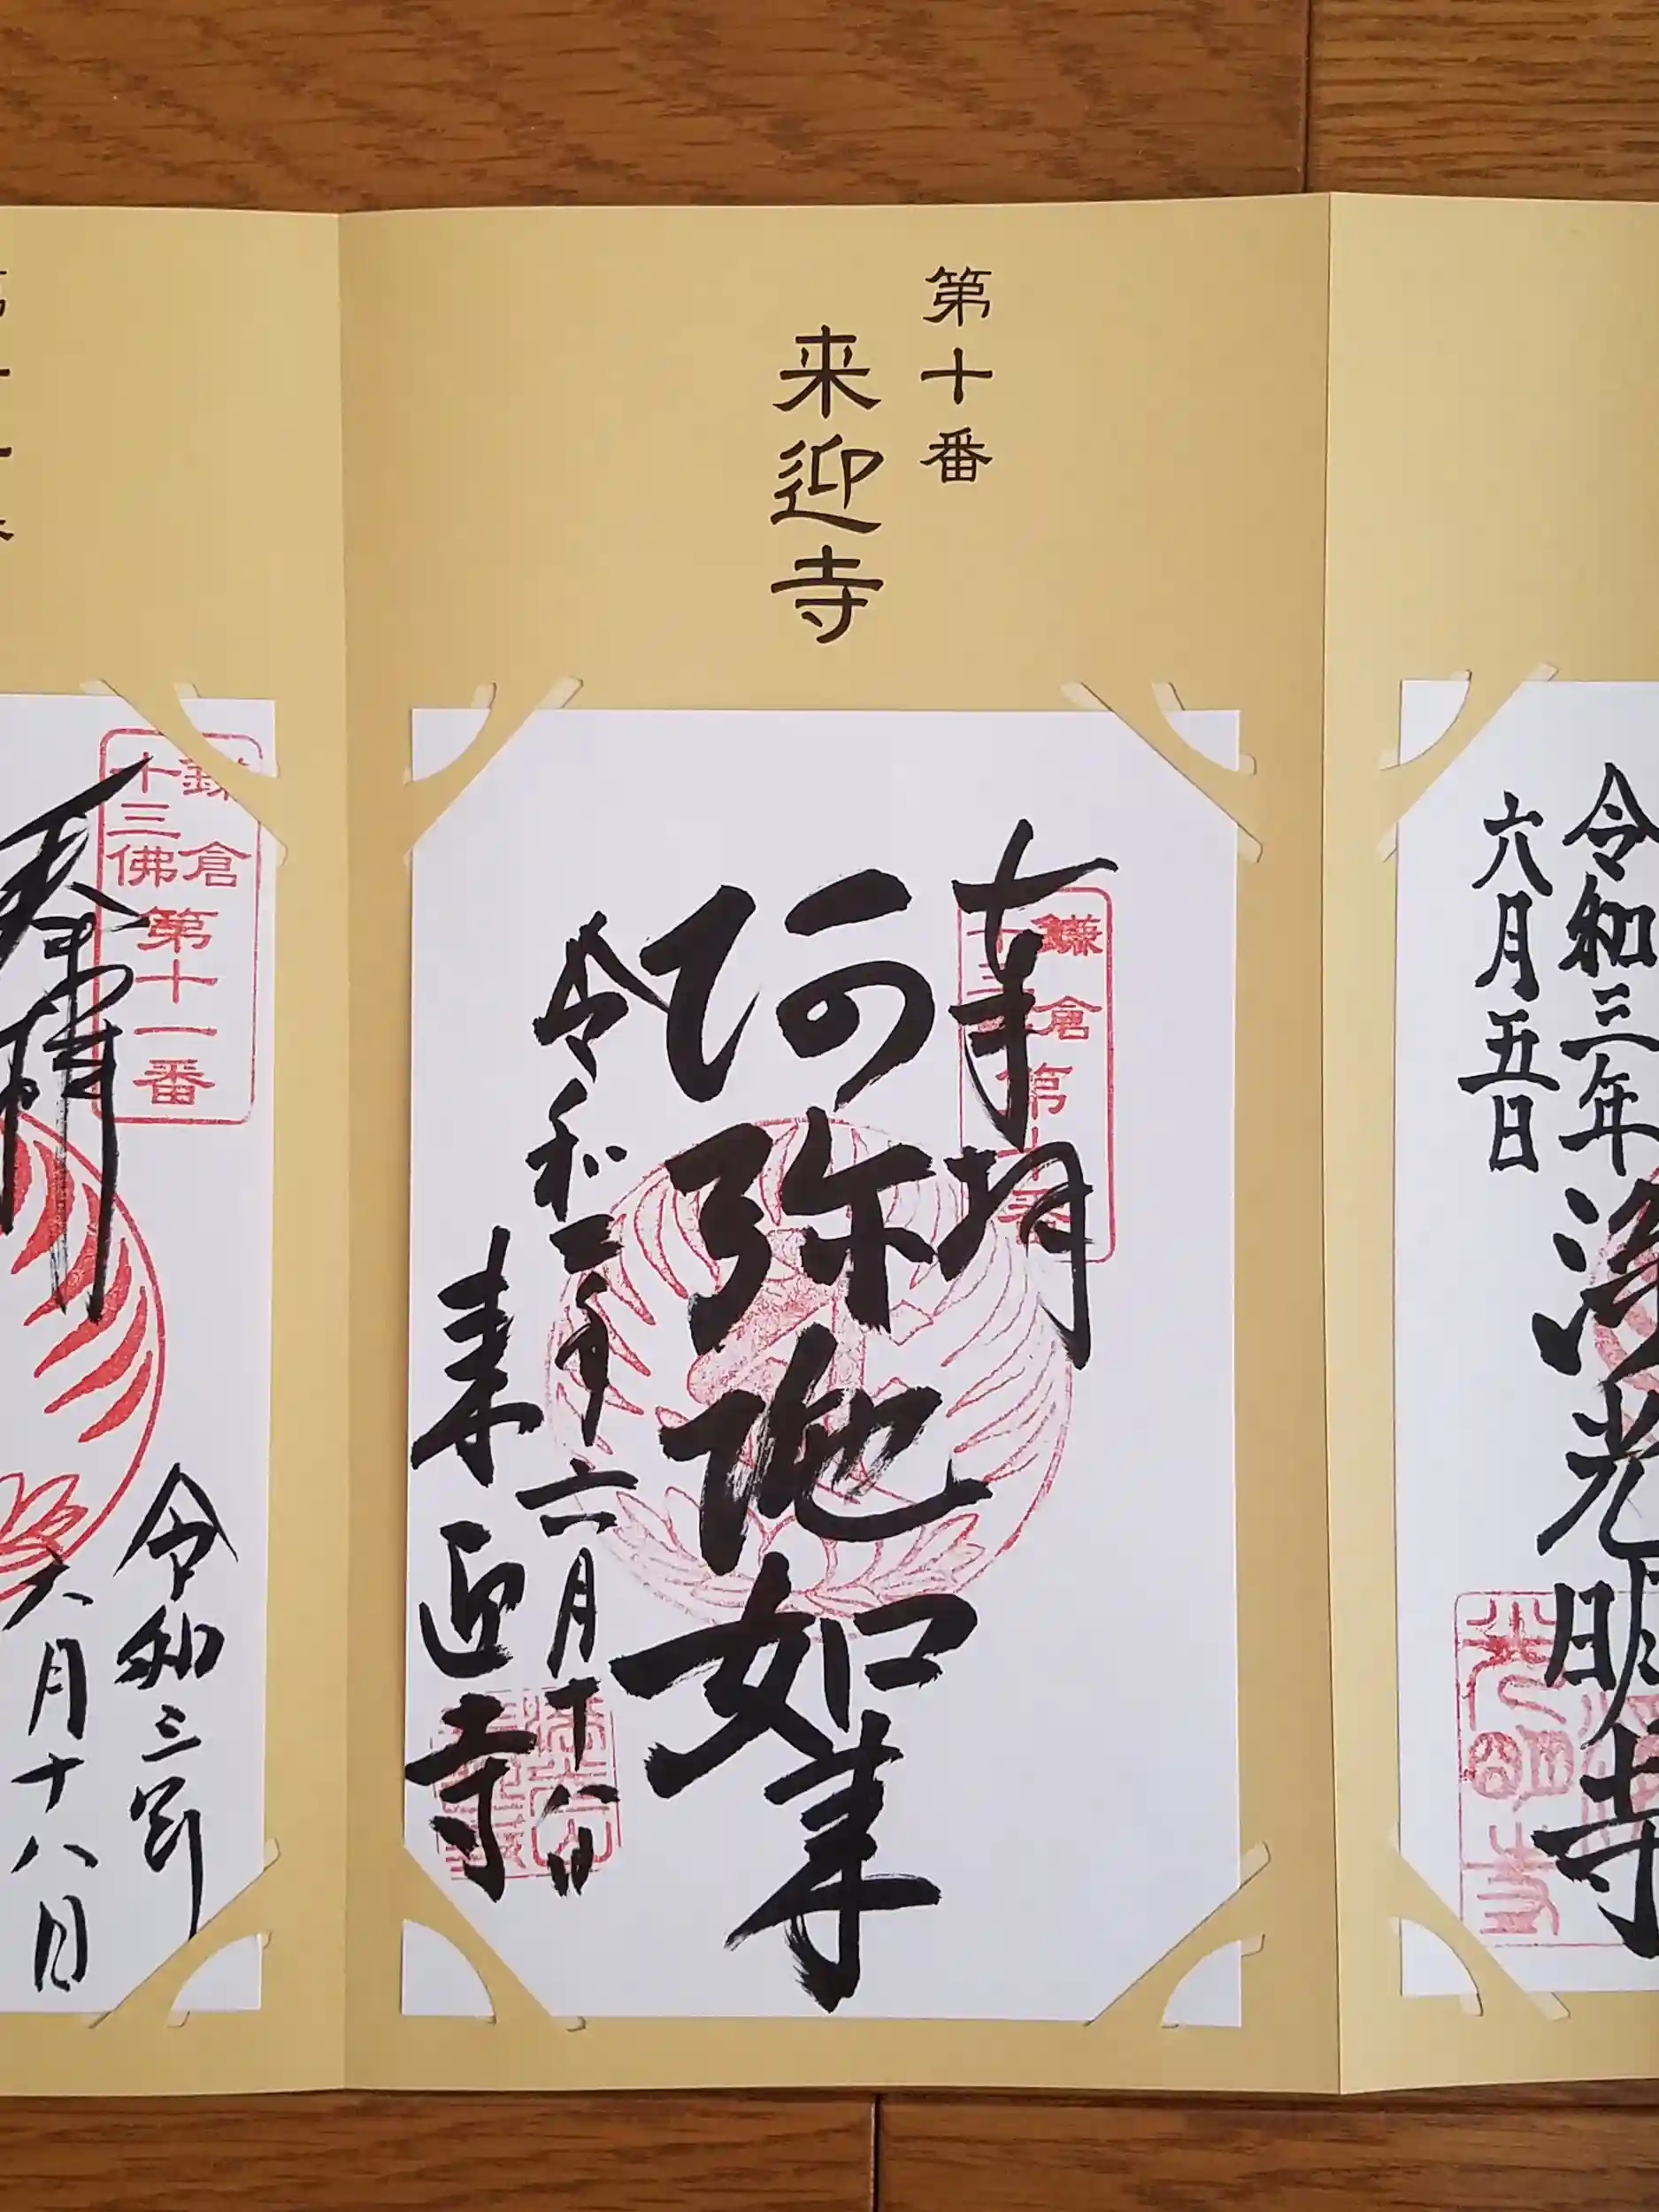 第十番
来迎寺
奉拝
阿弥陀如来
令和三年六月十八日
来迎寺
鎌倉
第十番
令和三年
六月五日
浄光明寺
鎌倉
十三佛
第十一番
奉拝
令和三年
六月十八日